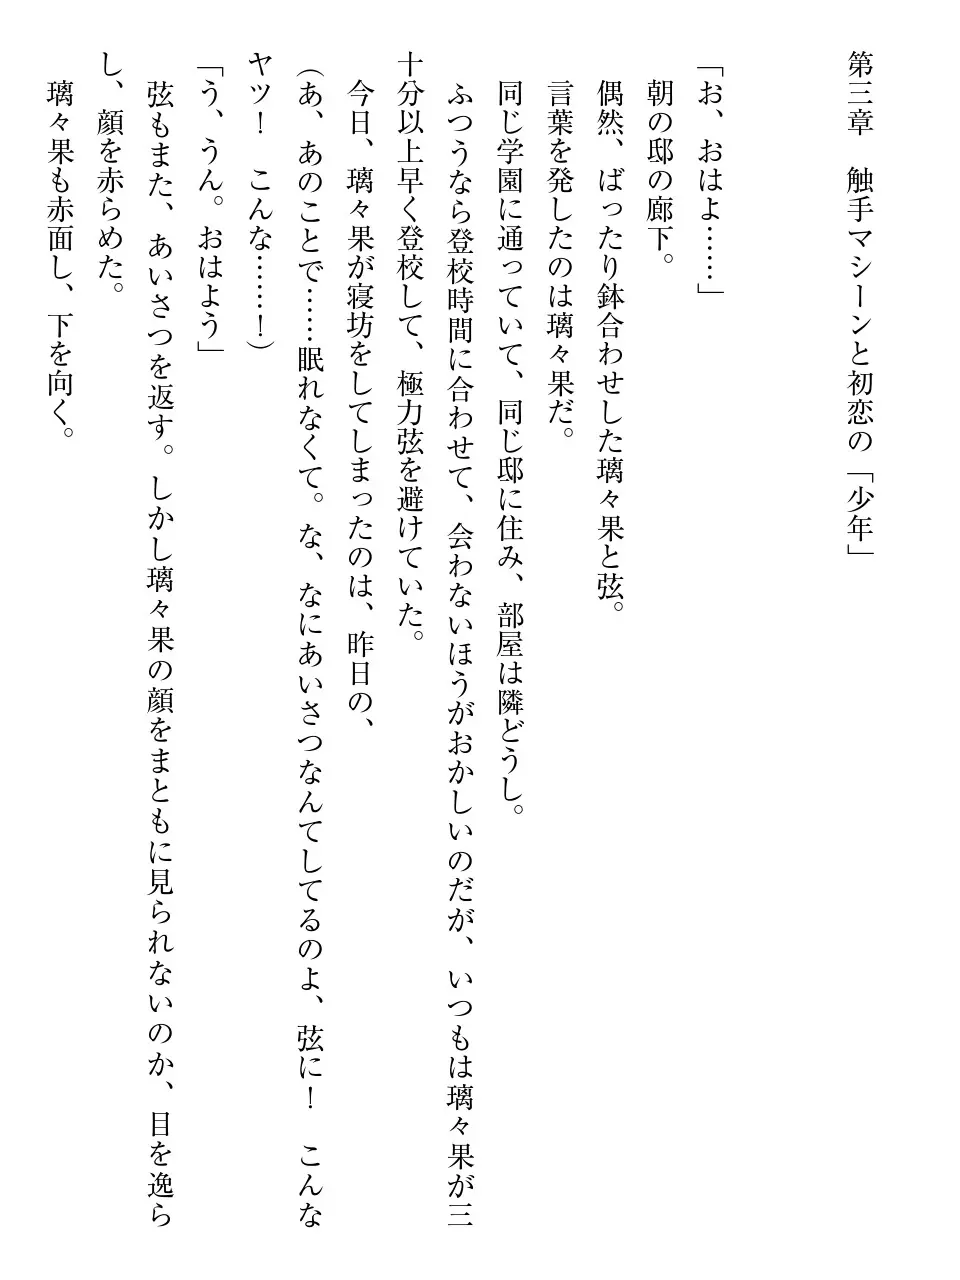 第三章　触手マシーンと初恋の「少年」
「お、おはよ……」
　朝の邸の廊下。
　偶然、ばったり鉢合わせした璃々果と弦。
　言葉を発したのは璃々果だ。
　同じ学園に通っていて、同じ邸に住み、部屋は隣どうし。
　ふつうなら登校時間に合わせて、会わないほうがおかしいのだが、いつもは璃々果が三
十分以上早く登校して、極力弦を避けていた。
　今日、璃々果が寝坊をしてしまったのは、昨日の、
（あ、あのことで……眠れなくて。な、なにあいさつなんてしてるのよ、弦に！　こんな
ヤツ！　こんな……！）
「う、うん。おはよう」
　弦もまた、あいさつを返す。しかし璃々果の顔をまともに見られないのか、目を逸ら
し、顔を赤らめた。
　璃々果も赤面し、下を向く。